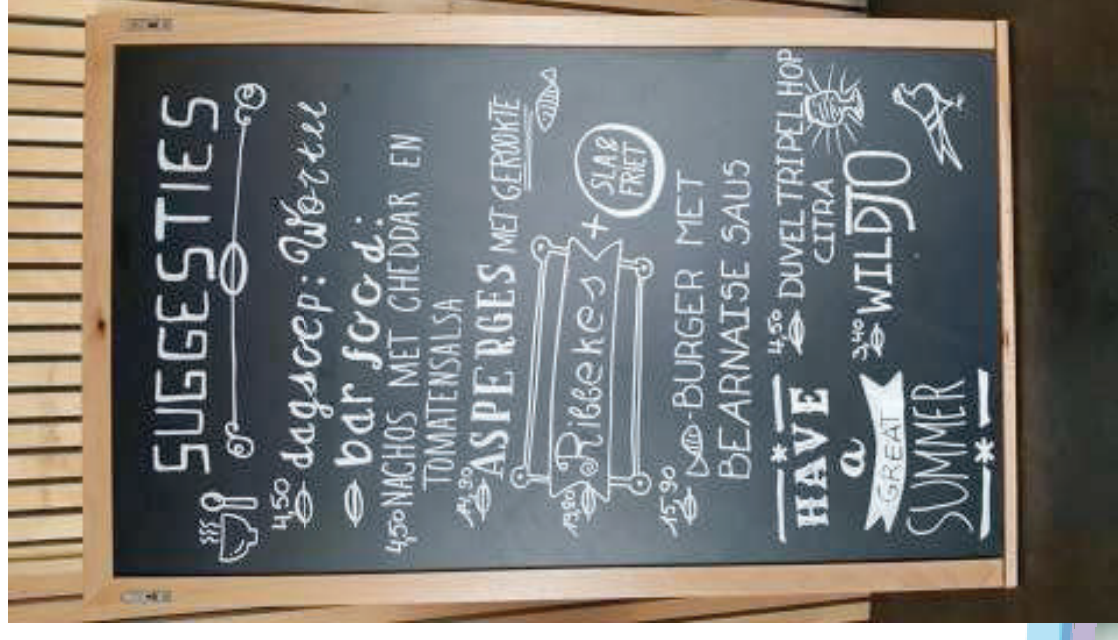 SUGGESTIES
4,50 dagsoep: Wortel
bar food:
4,50 NACHOS MET CHEDDAR EN
TOMATENSALSA
14,90 ASPERGES MET GEROOKTE
19,80 Ribbekes + SLA & FRIET
15,90 BURGER MET
BEARNAISE SAUS
4,50 DUVEL TRIPEL HOP
CITRA
3,40 WILDJO
HAVE
a
GREAT
SUMMER